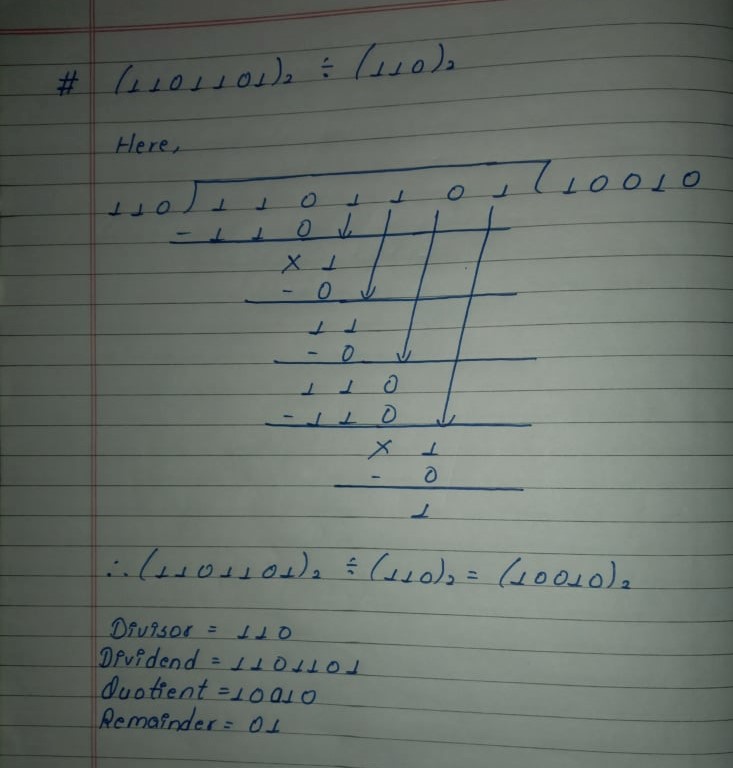 # (1101101)₂ ÷ (110)₂
Here,
110) 1 1 0 1 1 0 1 (10010
- 1 1 0
x 1
- 0
1 1
- 0
1 1 0
- 1 1 0
x 1
- 0
1
∴ (1101101)₂ ÷ (110)₂ = (10010)₂
Divisor = 110
Dividend = 1101101
Quotient = 10010
Remainder = 01